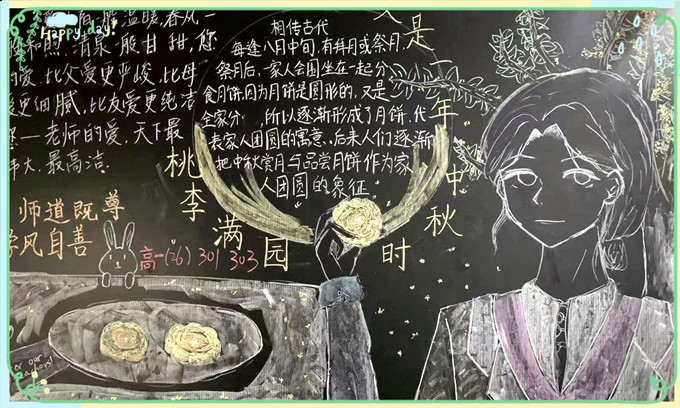 Happy day!
般温暖,春风一
般和煦,清泉一般甘甜,您
的爱,比父爱更严峻,比母
爱更细腻,比友爱更纯洁
一老师的爱,天下最
伟大,最高洁.
师道既尊
学风自善
桃李满园
高一(26) 301 303
相传古代
每逢八月中旬,有拜月或祭月.
祭月后,一家人会围坐在一起分
食月饼,因为月饼是圆形的,又是
全家分,所以逐渐形成了月饼,代
表家人团圆的寓意,后来人们逐渐
把中秋赏月与品尝月饼作为家
人团圆的象征.
又是一年中秋时
for our